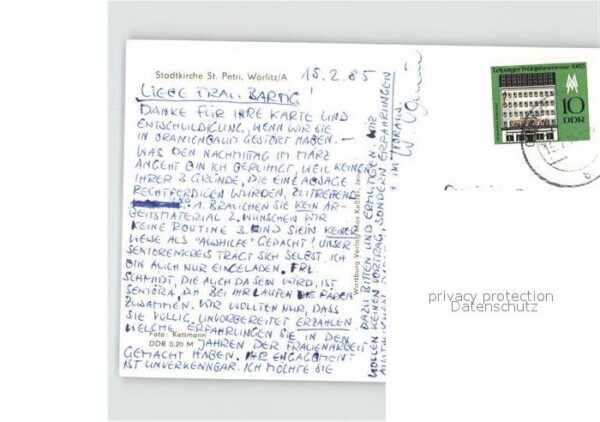 Stadtkirche St. Petri, Wörlitz/A
15.2.85
LIEBE FRAU BARTIG!
DANKE FÜR IHRE KARTE UND
ENTSCHULDIGUNG, WENN WIR SIE
IN ORANIENBAUM GESTÖRT HABEN. –
WAS DEN NACHMITTAG IM MÄRZ
ANGEHT BIN ICH BERUHIGT, WEIL KEINER
IHRER 3 GRÜNDE, DIE EINE ABSAGE
RECHTFERTIGEN WÜRDEN, ZUTREFFEND
1. BRAUCHEN SIE KEIN AR-
BEITSMATERIAL 2. WÜNSCHEN WIR
KEINE ROUTINE 3. SIND SIE IN KEINER
WEISE ALS "AUSHILFE" GEDACHT! UNSER
SENIORENKREIS TRÄGT SICH SELBST. ICH
BIN AUCH NUR EINGELADEN. FRL
SCHMIDT, DIE AUCH DA SEIN WIRD, IST
SENIORIN, DH BEI IHR LAUFEN DIE FÄDEN
ZUSAMMEN. WIR WOLLTEN NUR, DASS
SIE VÖLLIG UNVORBEREITET ERZÄHLEN
WELCHE ERFAHRUNGEN SIE IN DEN
Foto: Kettmann
JAHREN DER FRAUENARBEIT
DDR 0,20 M
GEMACHT HABEN. IHR ENGAGEMENT
IST UNVERKENNBAR. ICH MÖCHTE SIE
DAZU BITTEN UND ERMUTIGEN. WIR
WOLLEN KEINEN VORTRAG, SONDERN ERFAHRUNGEN
Wartburg Verlag Max Keßler, Jena
Leipziger Frühjahrsmesse 1983
MM
10
DDR
privacy protection
Datenschutz